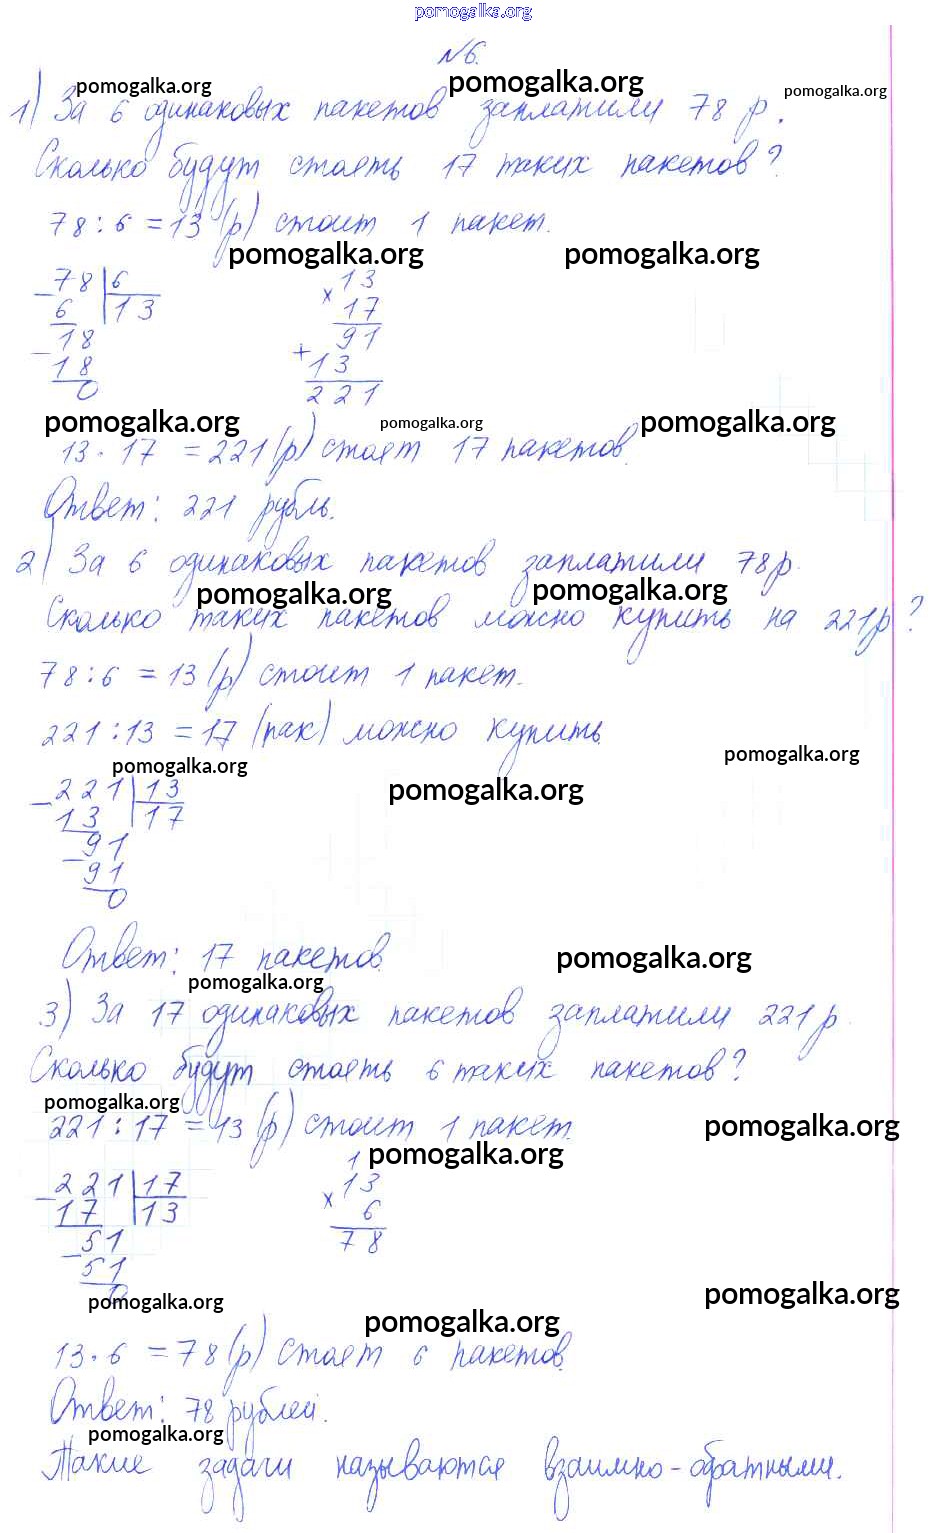 pomogalka.org
№6.
pomogalka.org pomogalka.org pomogalka.org
1) За 6 одинаковых пакетов заплатили 78 р.
Сколько будут стоять 17 таких пакетов?
78 : 6 = 13 (р) стоит 1 пакет.
pomogalka.org pomogalka.org
− 78 | 6
6 | 13
− 18
18
0
× 13
17
91
+ 13
221
pomogalka.org pomogalka.org pomogalka.org
13 · 17 = 221 (р) стоят 17 пакетов.
Ответ: 221 рубль.
2) За 6 одинаковых пакетов заплатили 78 р.
pomogalka.org pomogalka.org
Сколько таких пакетов можно купить на 221 р?
78 : 6 = 13 (р) стоит 1 пакет.
221 : 13 = 17 (пак) можно купить.
pomogalka.org pomogalka.org
pomogalka.org
− 221 | 13
13 | 17
− 91
91
0
Ответ: 17 пакетов.
pomogalka.org
pomogalka.org
3) За 17 одинаковых пакетов заплатили 221 р.
Сколько будут стоять 6 таких пакетов?
pomogalka.org
221 : 17 = 13 (р) стоит 1 пакет.
pomogalka.org
pomogalka.org
− 221 | 17
17 | 13
− 51
51
0
1
× 13
6
78
pomogalka.org pomogalka.org
pomogalka.org
13 · 6 = 78 (р) стоят 6 пакетов.
Ответ: 78 рублей.
pomogalka.org
Такие задачи называются взаимно-обратными.